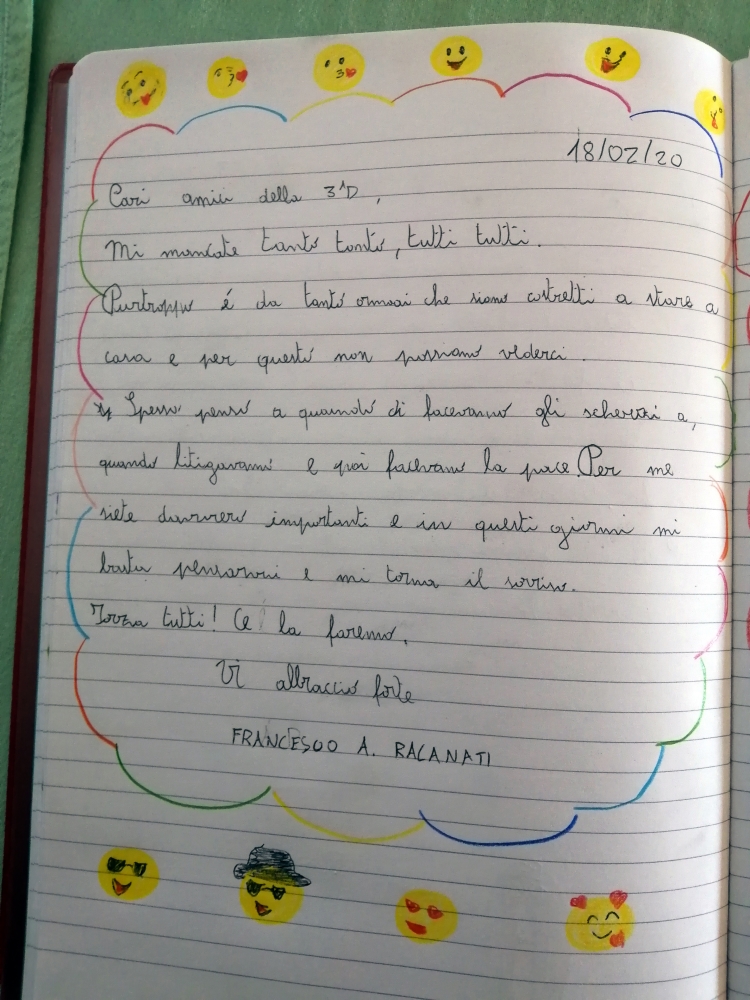 18/02/20
Cari amici della 3^D,
Mi mancate tanto tanto, tutti tutti.
Purtroppo é da tanto ormai che siamo costretti a stare a
casa e per questo non possiamo vederci.
Spesso penso a quando ci facevamo gli scherzi a,
quando litigavamo e poi facevamo la pace. Per me
siete davvero importanti e in questi giorni mi
basta pensarvi e mi torna il sorriso.
Forza tutti! Ce la faremo.
Vi abbraccio forte
FRANCESCO A. RACANATI